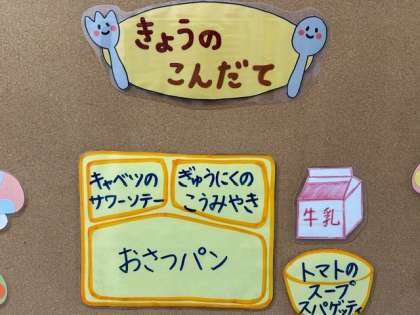 きょうの
こんだて
キャベツの
サワーソテー
ぎゅうにくの
こうみやき
おさつパン
牛乳
トマトの
スープ
スパゲッティ